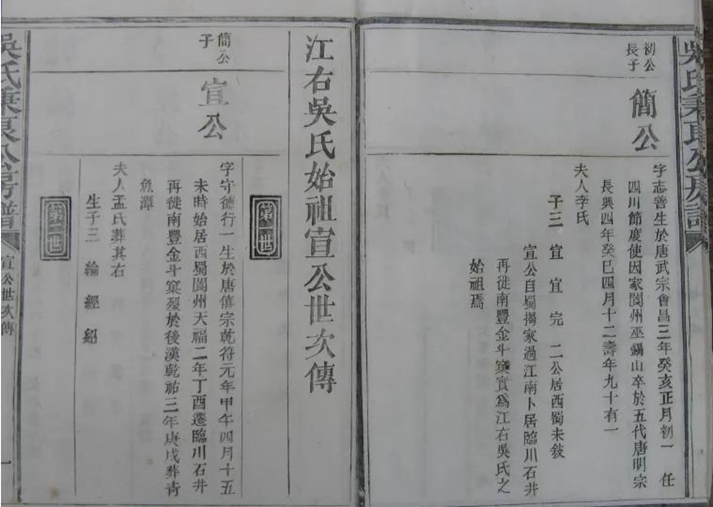 吳氏秉良公房譜
初公
長子
簡公
字志善生於唐武宗會昌三年癸亥正月初一 任
四川節度使因家閬州巫錫山卒於五代唐明宗
長興四年癸巳四月十二壽年九十有一
夫人李氏
子三 宣 宜 完 二公居西蜀未敍
宣公自蜀攜家過江南卜居臨川石井
再徙南豐金斗窠實爲江右吳氏之
始祖焉
江右吳氏始祖宣公世次傳
第一世
簡公
子
宣公
字守德行一生於唐僖宗乾符元年甲午四月十五
未時始居西蜀閬州天福二年丁酉遷臨川石井
再徙南豐金斗窠歿於後漢乾祐三年庚戌葬青
魚潭
夫人孟氏葬其右
生子三 綸 經 紹
第二世
吳氏秉良公房譜
宣公世次傳
一